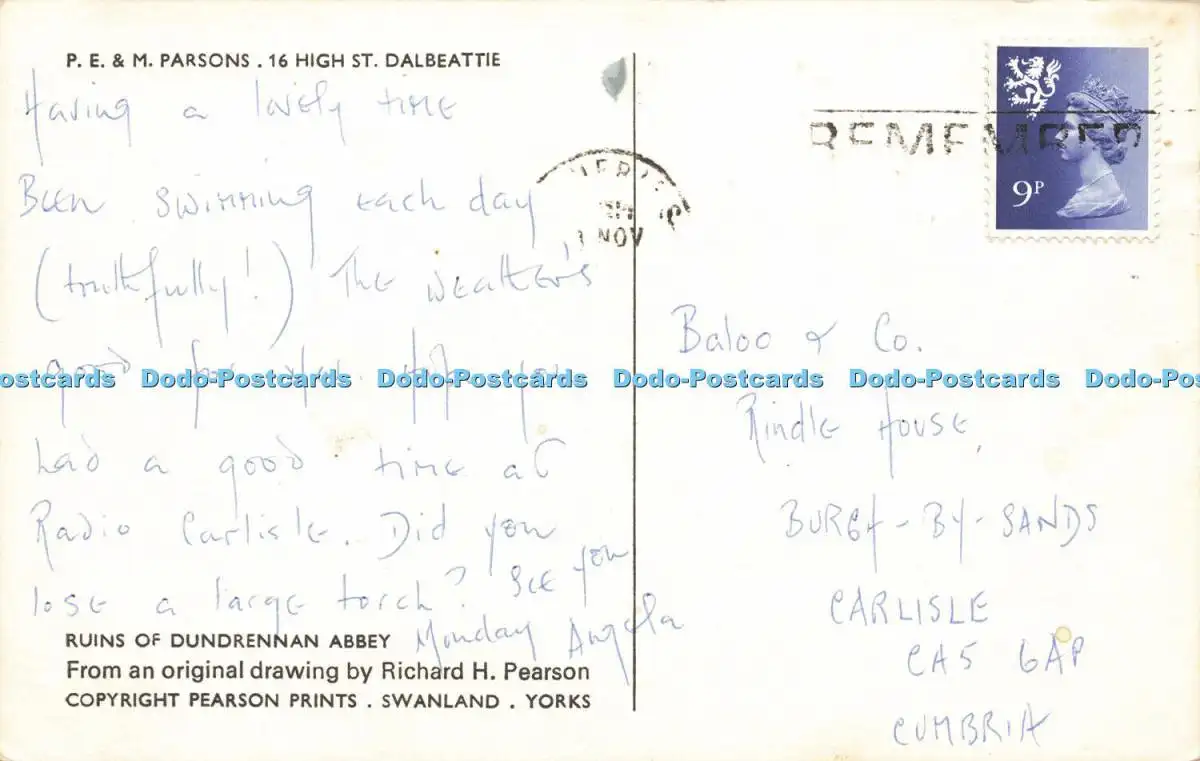 P. E. & M. PARSONS . 16 HIGH ST. DALBEATTIE
Having a lovely time
Been swimming each day
(truthfully!) The weather's
good for
had a good time at
Radio Carlisle. Did you
lose a large torch? See you
Monday Angela
RUINS OF DUNDRENNAN ABBEY
From an original drawing by Richard H. Pearson
COPYRIGHT PEARSON PRINTS . SWANLAND . YORKS
REMEMBER
NOV
9P
Baloo & Co.
Rindle House,
BURGH-BY-SANDS
CARLISLE
CA5 6AP
CUMBRIA
Dodo-Postcards Dodo-Postcards Dodo-Postcards Dodo-Postcards